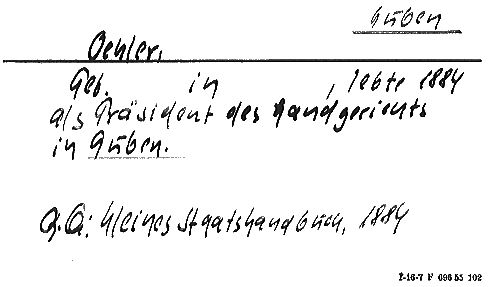 Guben
Oehler,
Geb. in , lebte 1884
als Präsident des Landgerichts
in Guben.
Q.Q: Kleines Staatshandbuch, 1884
I-16-7 F 696 55 102